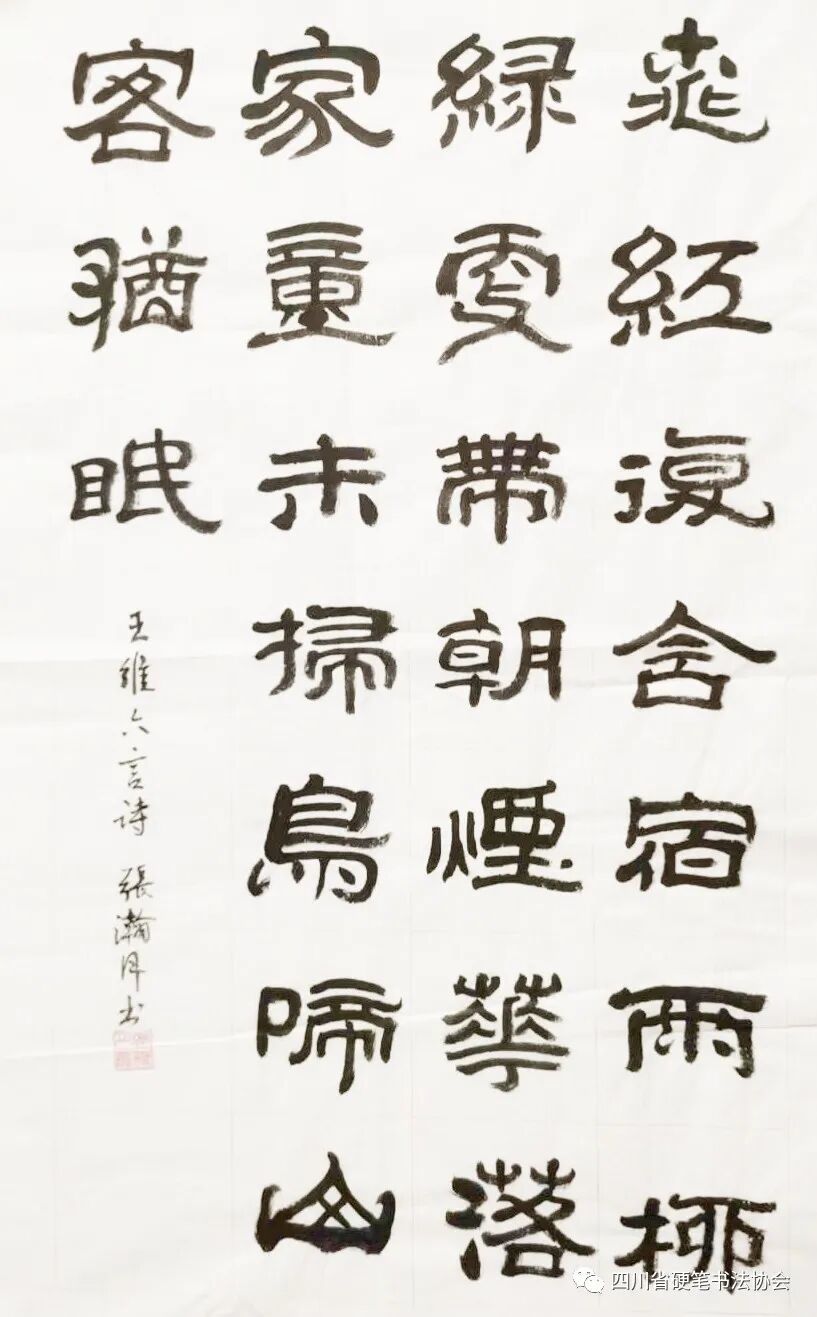 桃紅復含宿雨柳
緑更帶朝煙華落
家童未掃鳥啼山
客猶眠
王維六言诗 張瀚书
四川省硬笔书法协会